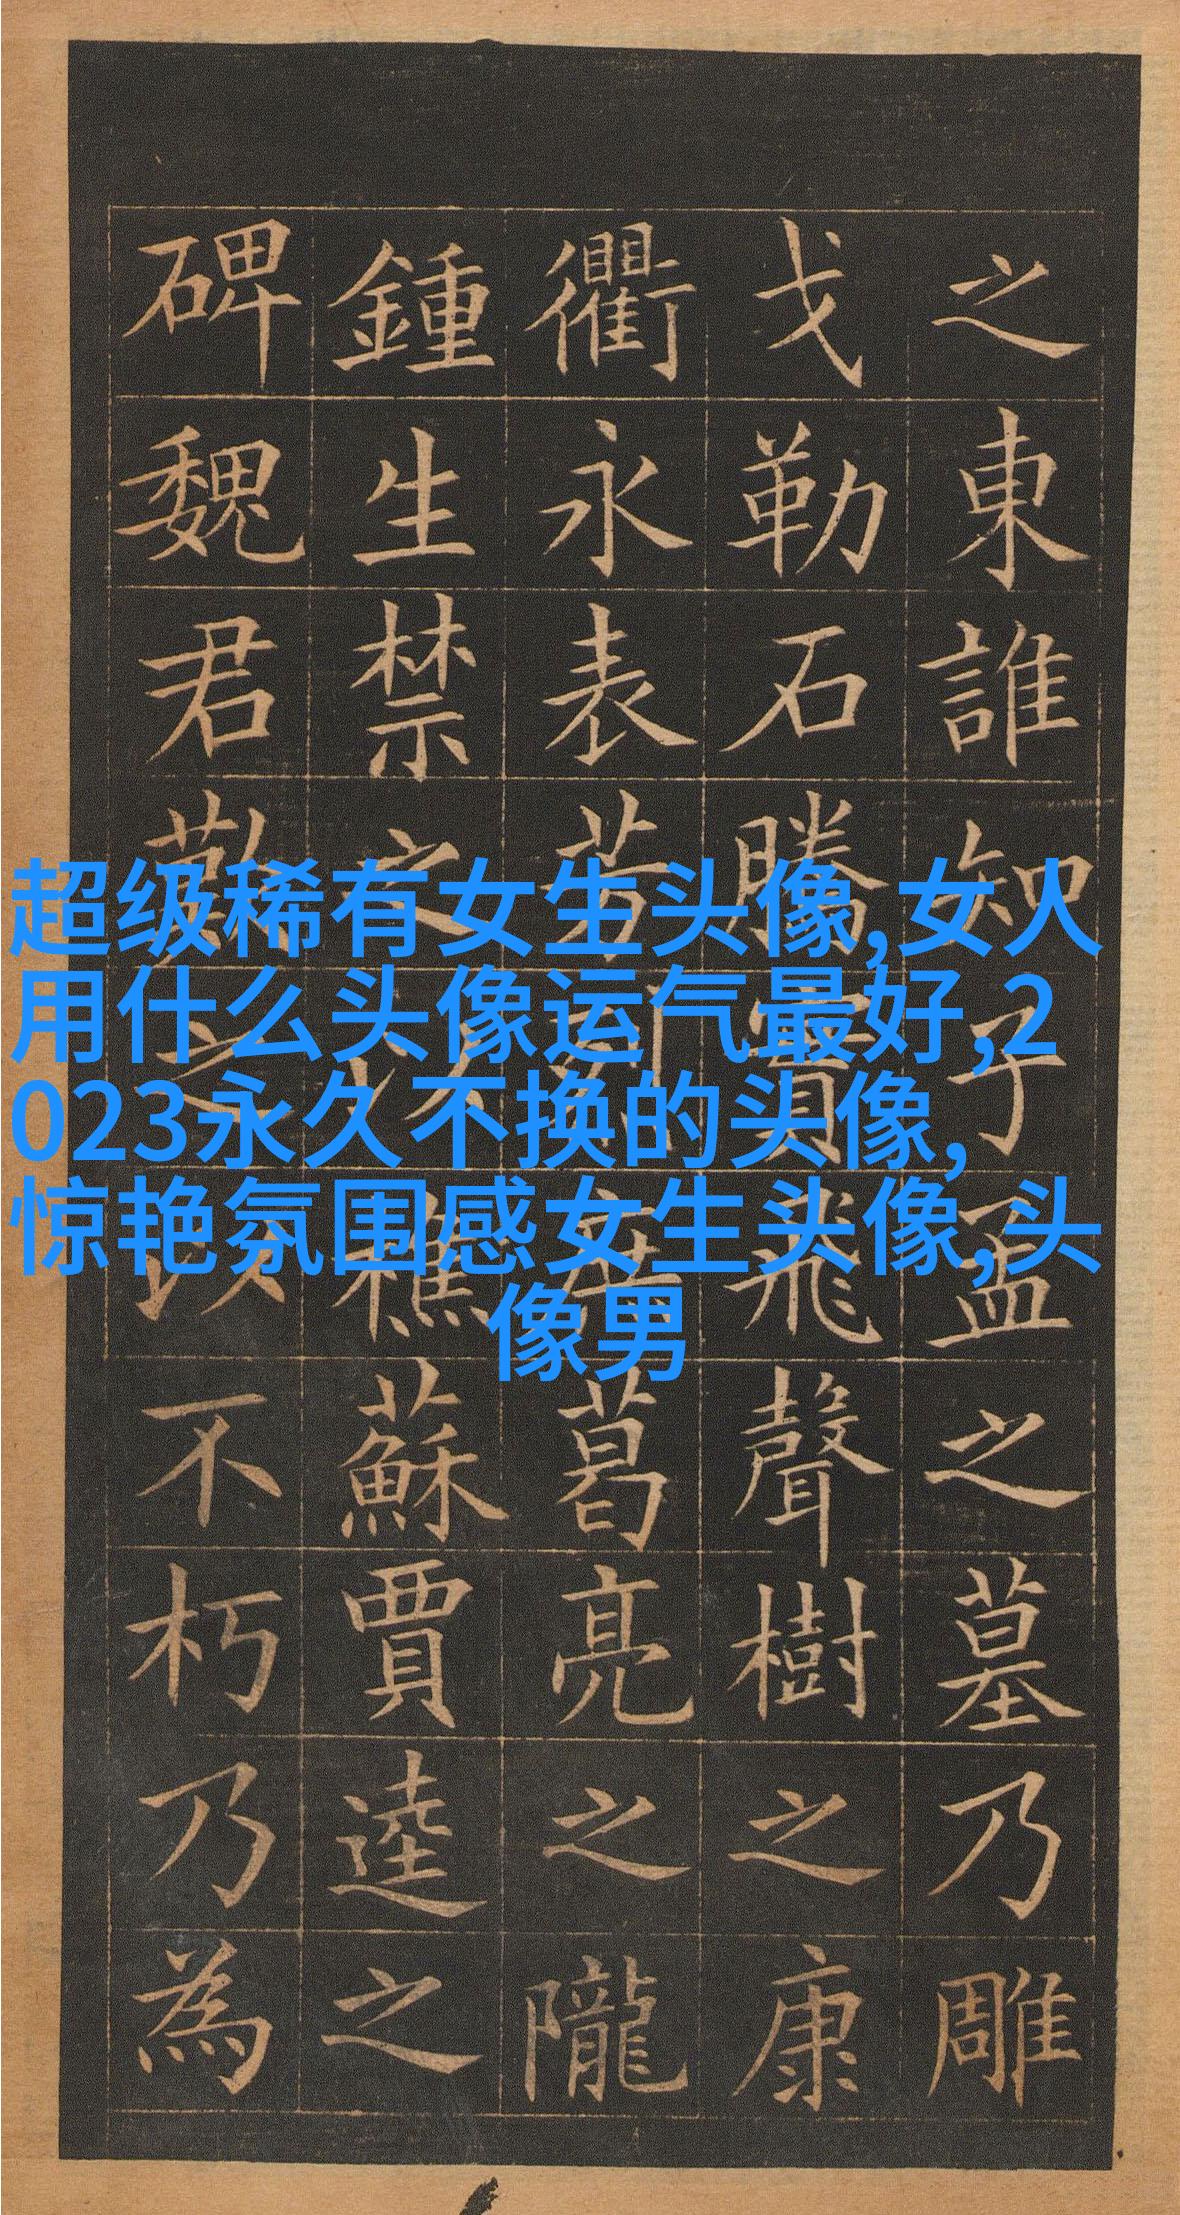 超级稀有女生头像,女人
用什么头像运气最好,2
023永久不换的头像,
惊艳氛围感女生头像,头
像男
之東誰知子孟之墓乃雕
戈勒石騰實飛聲樹之康
衢永表若葛亮之隴
鍾生禁之以樵蘇賈逵之
碑魏君之以不朽乃為